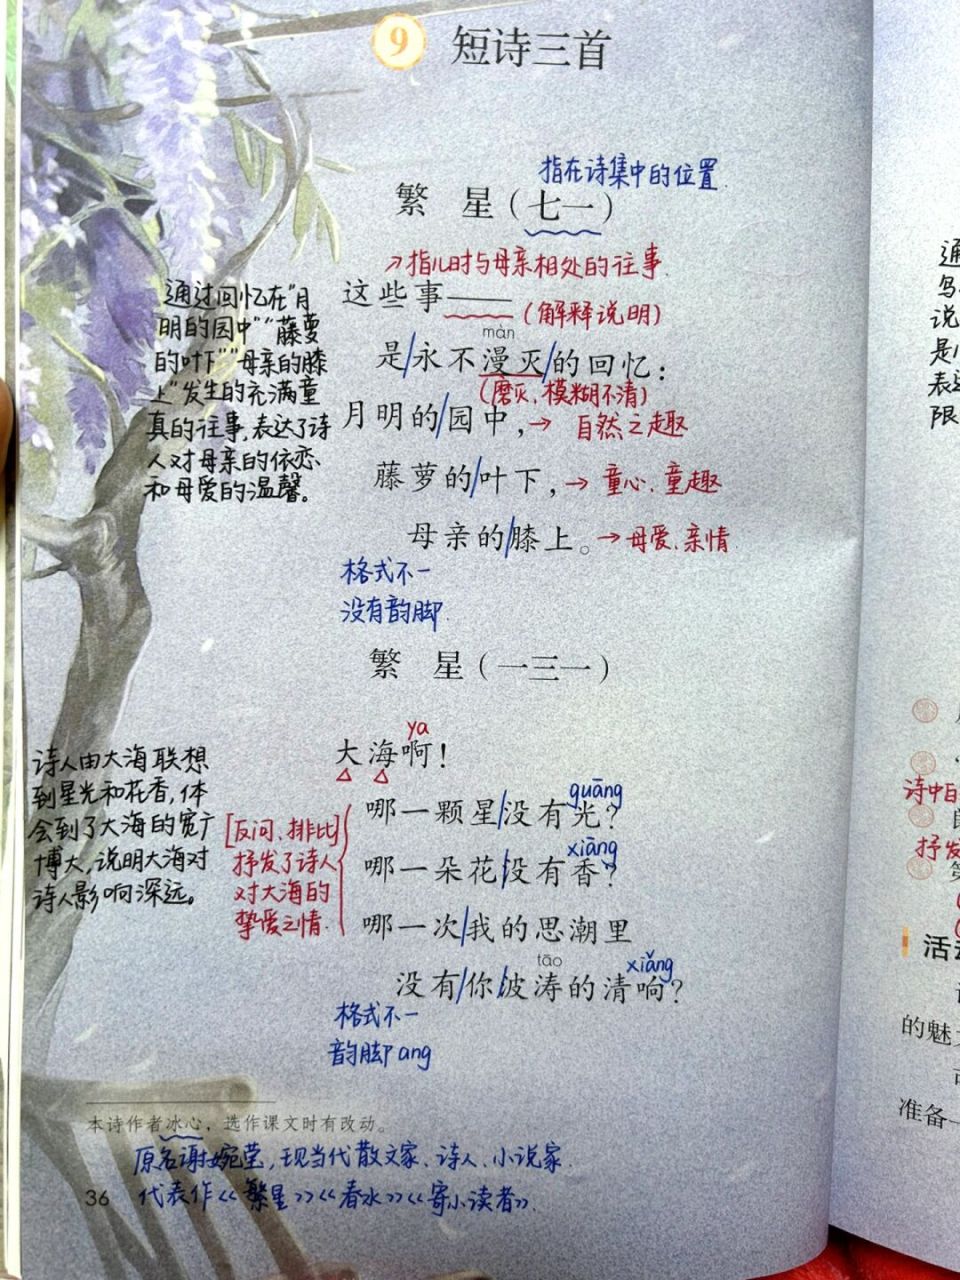 9 短诗三首
指在诗集中的位置
繁 星（七一）
指儿时与母亲相处的往事
这些事——
（解释说明）
màn
是/永不漫灭/的回忆：
（磨灭、模糊不清）
月明的/园中，→ 自然之趣
藤萝的/叶下，→ 童心、童趣
母亲的/膝上。→ 母爱、亲情
格式不一
没有韵脚
通过回忆在“月
明的园中”“藤萝
的叶下”“母亲的膝
上”发生的充满童
真的往事，表达了诗
人对母亲的依恋
和母爱的温馨。
繁 星（一三一）
ya
大海啊！
guāng
哪一颗星/没有光？
xiāng
哪一朵花/没有香？
哪一次/我的思潮里
tāo
xiǎng
没有/你/波涛的清响？
[反问、排比]
抒发了诗人
对大海的
挚爱之情
诗人由大海联想
到星光和花香，体
会到了大海的宽广
博大，说明大海对
诗人影响深远。
格式不一
韵脚ang
本诗作者冰心，选作课文时有改动。
原名谢婉莹，现当代散文家、诗人、小说家
代表作《繁星》《春水》《寄小读者》
36
诗中
抒发
活
的魅
准备
表达
限